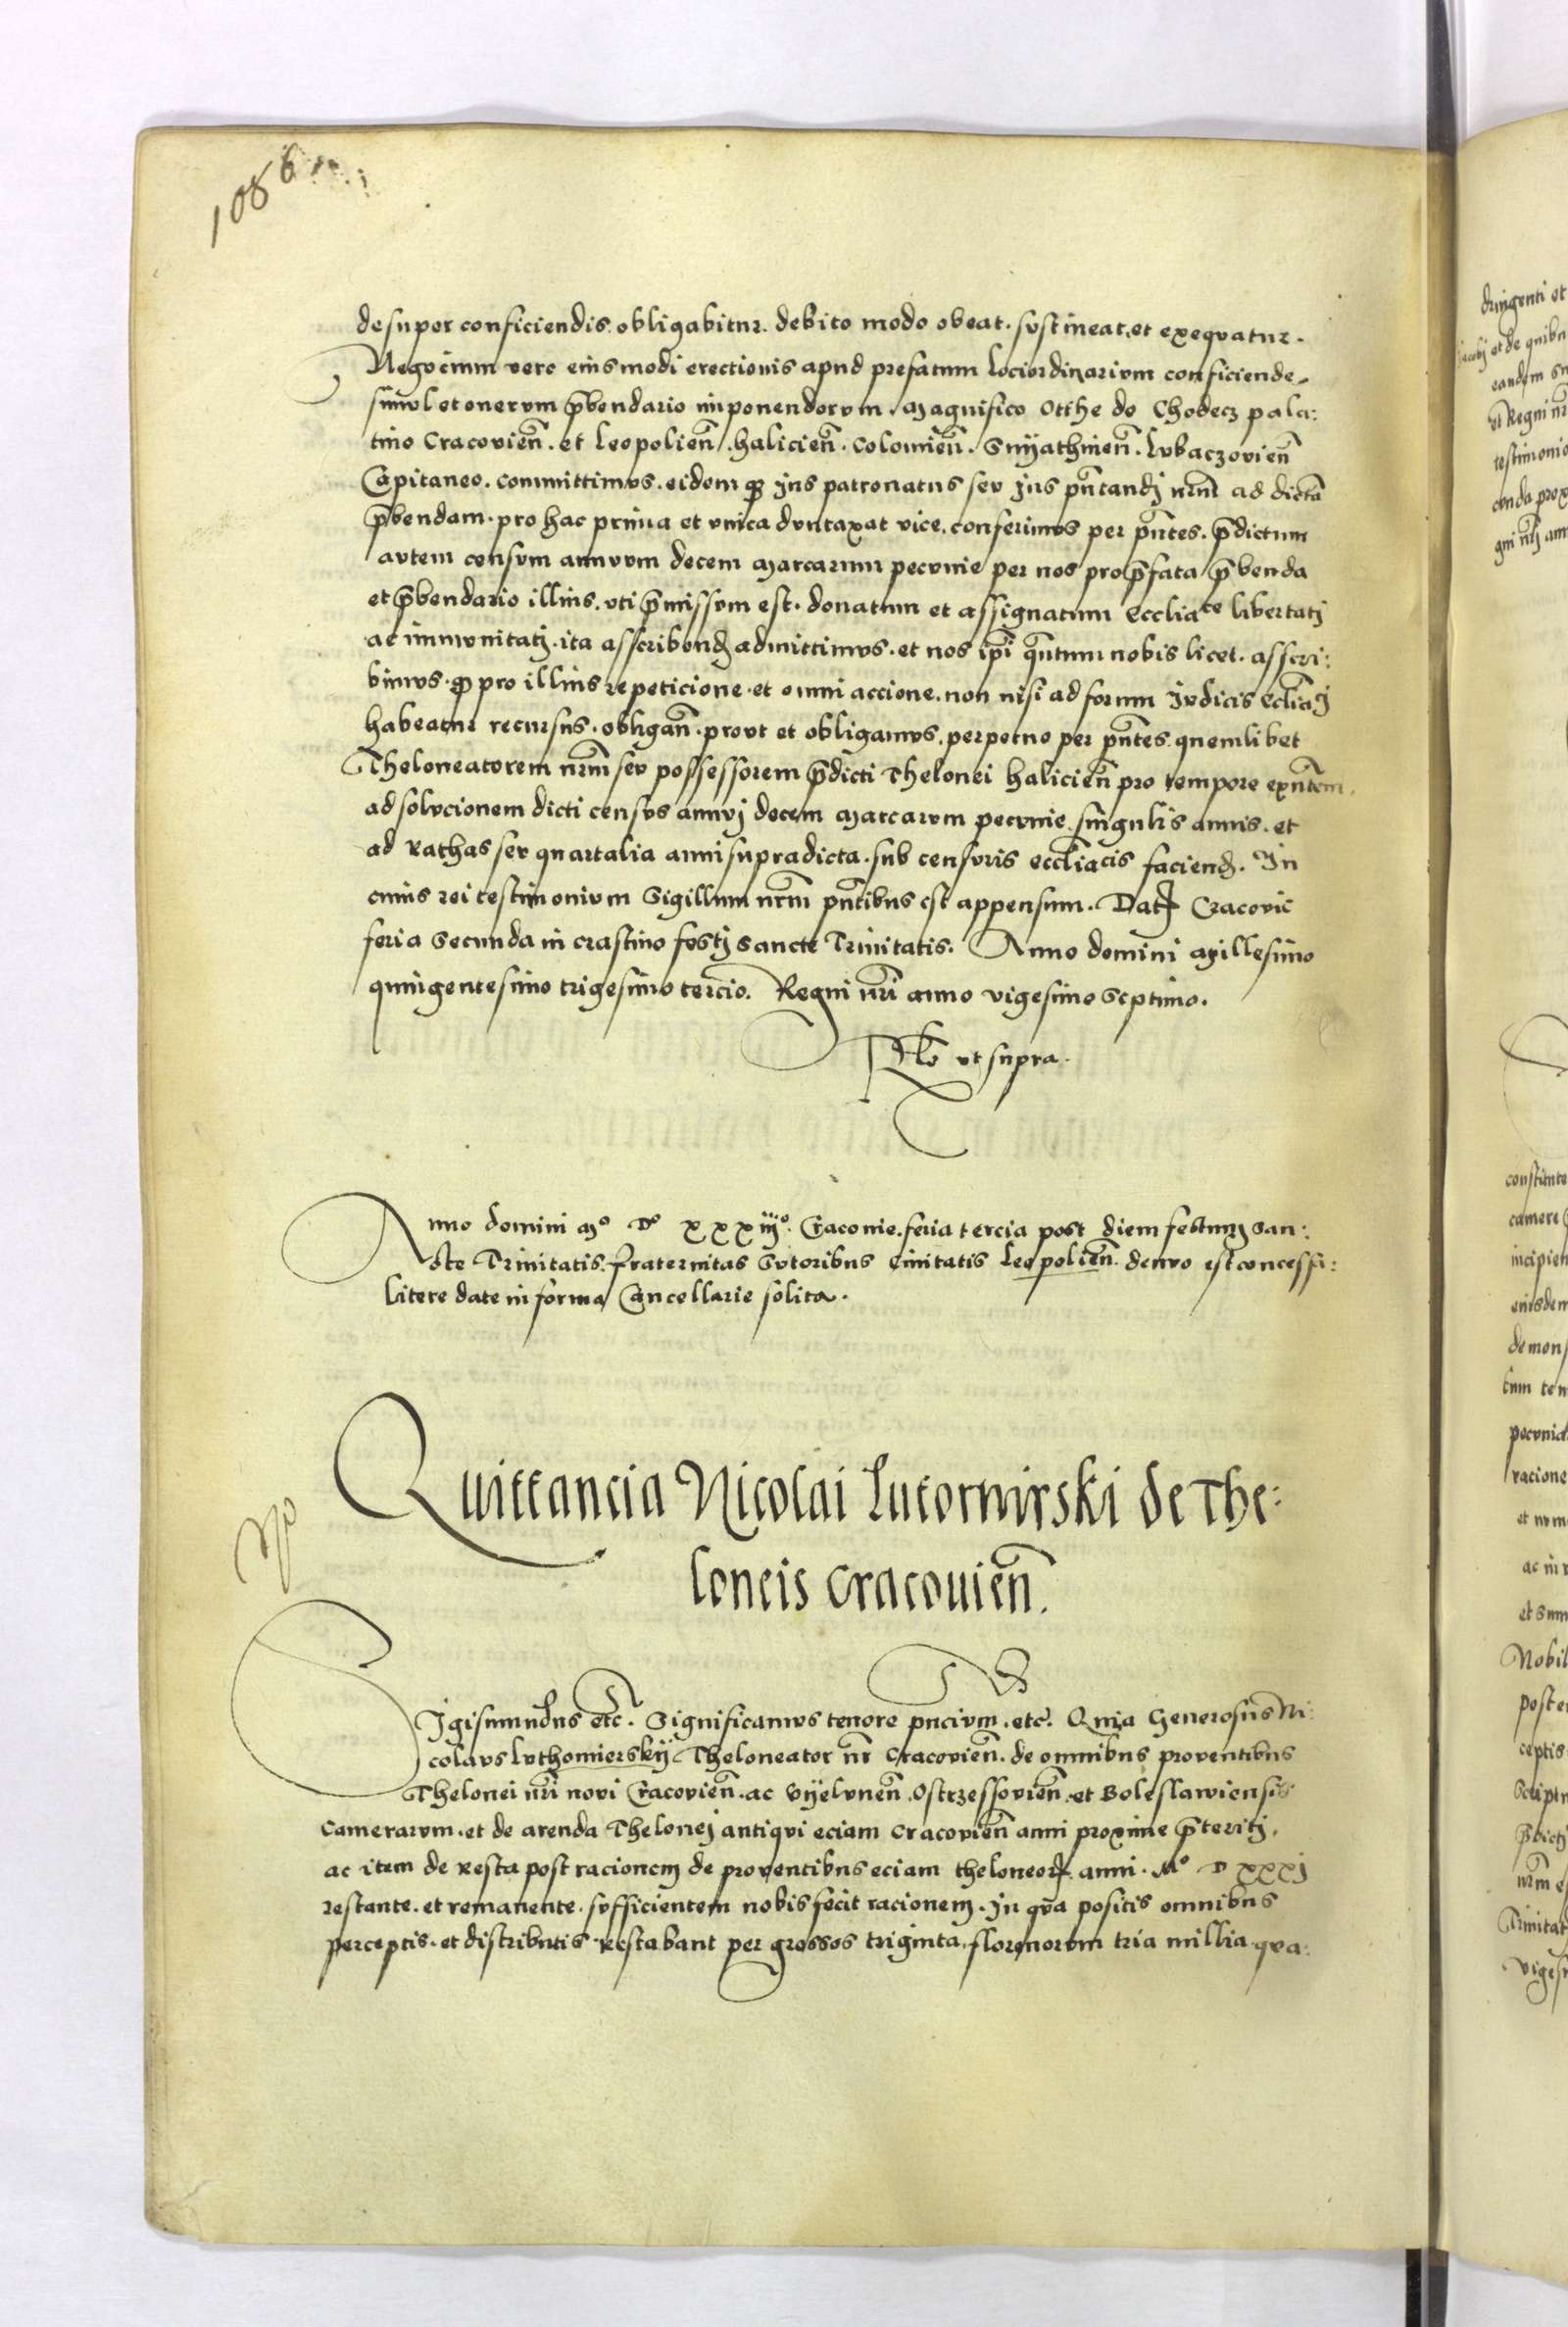 1086
desuper conficiendis. obligabitur. debito modo obeat. sustineat. et exequatur.
Negocium vero eiusmodi erectionis apud prefatum lociordinarium conficiende,
simul et onerum p̄bendario imponendorum. Magnifico Otthe de Chodecz pala:
tino Cracovień. et Leopolień. halicień. Colomień. Snyathnień. Lubaczovień
Capitaneo. committimus. eidemq; ius patronatus seu ius pn̄tandj nr̄m ad dictā
p̄bendam. pro hac prima et unica duntaxat vice. conferimus per pn̄tes. p̄dictum
autem censum annuum decem Marcarum pecunie per nos pro p̄fata p̄benda
et p̄bendario illius. uti p̄missum est. donatum et assignatum Eccliāce libertatj
ac immunitatj. ita asscribend̄ admittimus. et nos ip̄i qn̄tum nobis licet. asscri:
bimus. qd̄ pro illius repeticione. et omni accione. non nisi ad forum Judicis Ecliācj
habeatur recursus. obligań. prout et obligamus. perpetuo per pn̄tes. quemlibet
Theloneatorem nr̄m seu possessorem p̄dicti Thelonei halicień pro tempore exn̄tem.
ad solucionem dicti census annuj decem Marcarum pecunie. singulis annis. et
ad Rathas seu quartalia anni supradicta. sub censuris eccliācis faciend̄. In
cuius rei testimonium Sigillum nr̄m pn̄tibus est appensum. Datꝝ Cracovie
feria Secunda in crastino festj Sancte Trinitatis. Anno domini Millesimo
quingentesimo trigesimo tercio. Regni nr̄i anno vigesimo Septimo.
Rlō ut supra.
Anno domini Mº Dº xxxiijº. Cracovie. feria tercia post diem festum San:
cte Trinitatis. fraternitas Sutoribus Civitatis Leopolień. denuo est concessa:
litere date in forma Cancellarie solita.
Quittancia Nicolai Lutomirski de The:
loneis Cracovień.
Sigismundus etc̄. Significamus tenore pn̄cium. etc. Quia Generosus Ni:
colaus Luthomierskÿ Theloneator nr̄ Cracovień. de omnibus proventibus
Thelonei nr̄i novi Cracovień. ac Vÿelunień. Ostrzessovień. et Boleslaviensis
Camerarum. et de arenda Thelonej antiqui eciam Cracovień anni proxime p̄teritj.
ac item de Resta post racionem de proventibus eciam theloneorꝝ anni. Mº D xxxj
restante. et remanente. sufficientem nobis fecit racionem. In qua positis omnibus
perceptis. et distributis. Restabant per grossos triginta. florenorum tria millia qua: